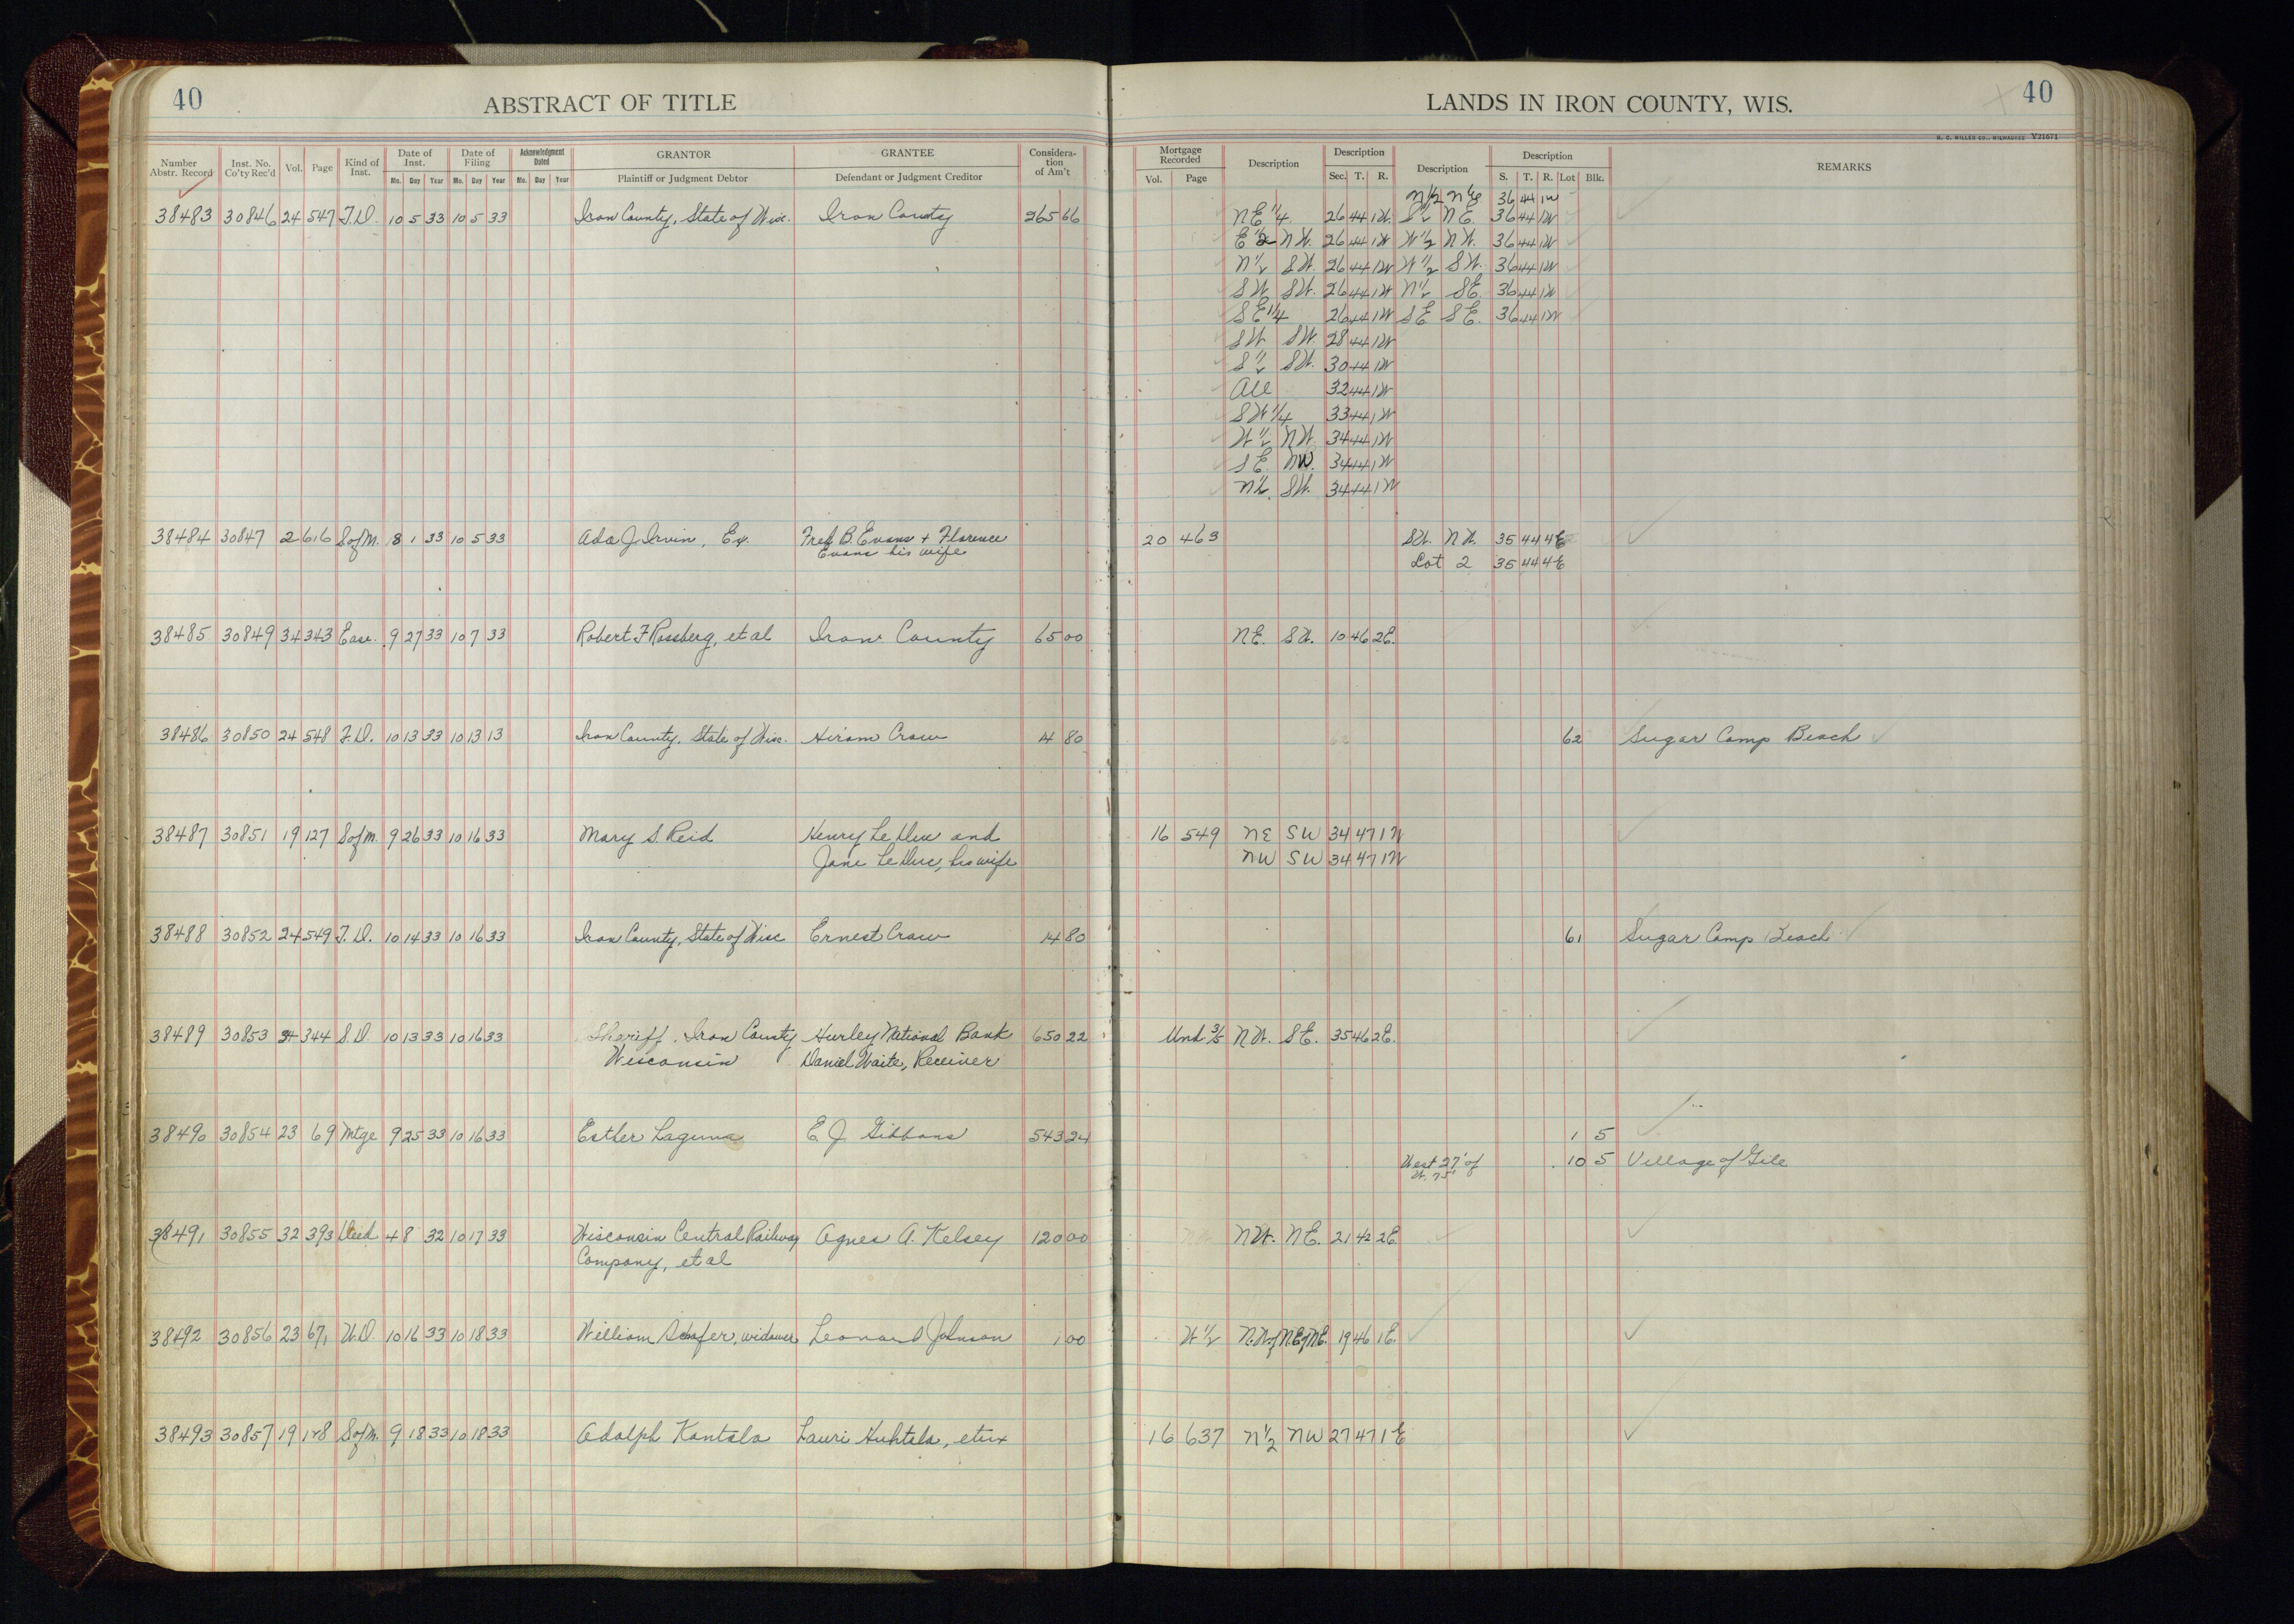 40
ABSTRACT OF TITLE
LANDS IN IRON COUNTY, WIS.
40
H. C. MILLER CO., MILWAUKEE Y21671
Number Abstr. Record Inst. No. Co'ty Rec'd Vol. Page Kind of Inst. Date of Inst. Date of Filing Acknowledgment Dated GRANTOR GRANTEE Consideration of Am't Mortgage Recorded Description Description Description Description REMARKS
Mo. Day Year Mo. Day Year Mo. Day Year Plaintiff or Judgment Debtor Defendant or Judgment Creditor Vol. Page Sec. T. R. S. T. R. Lot Blk.
N½ NE 36 44 1W
38483 30846 24 547 T.D. 10 5 33 10 5 33 Iron County, State of Wisc. Iron County 265 66 NE¼ 26 44 1W S½ NE. 36 44 1W
E½ NW. 26 44 1W W½ NW. 36 44 1W
N½ SW. 26 44 1W W½ SW. 36 44 1W
SW SW. 26 44 1W N½ SE. 36 44 1W
SE¼ 26 44 1W SE SE. 36 44 1W
SW SW. 28 44 1W
S½ SW. 30 44 1W
All 32 44 1W
SW¼ 33 44 1W
W½ NW 34 44 1W
SE. NW. 34 44 1W
N½ SW. 34 44 1W
38484 30847 2 616 S of M. 8 1 33 10 5 33 Ada J. Irvin, Ex. Fred B. Evans + Florence 20 463 SW. NW. 35 44 4E
Evans his wife Lot 2 35 44 4E
38485 30849 34 343 Ease. 9 27 33 10 7 33 Robert F Rossberg, et al Iron County 65 00 NE. SW. 10 46 2E.
38486 30850 24 548 T.D. 10 13 33 10 13 13 Iron County, State of Wisc. Hiram Craw 14 80 62 Sugar Camp Beach
38487 30851 19 127 S of M. 9 26 33 10 16 33 Mary S. Reid Henry LeDuc and 16 549 NE SW 34 47 1W
Jane LeDuc, his wife NW SW 34 47 1W
38488 30852 24 549 T.D. 10 14 33 10 16 33 Iron County, State of Wisc Ernest Craw 14 80 61 Sugar Camp Beach
38489 30853 34 344 S.D. 10 13 33 10 16 33 Sheriff, Iron County Hurley National Bank 650 22 Und 3/5 NW. SE. 35 46 2E.
Wisconsin Daniel Waite, Receiver
38490 30854 23 69 Mtge 9 25 33 10 16 33 Esther Laguna E. J. Gibbons 543 24 1 5
West 27' of 10 5 Village of Gile
W. 75'
38491 30855 32 393 Deed 4 8 32 10 17 33 Wisconsin Central Railway Agnes A. Kelsey 120 00 NW. NE. 21 42 2E.
Company, et al
38492 30856 23 671 W.D. 10 16 33 10 18 33 William Schafer, widower Leonard Johnson 1 00 W½ N.W. of N.E. of NE. 19 46 1E.
38493 30857 19 128 S of M. 9 18 33 10 18 33 Adolph Kantala Lauri Huhtala, etux 16 637 N½ NW 27 47 1E